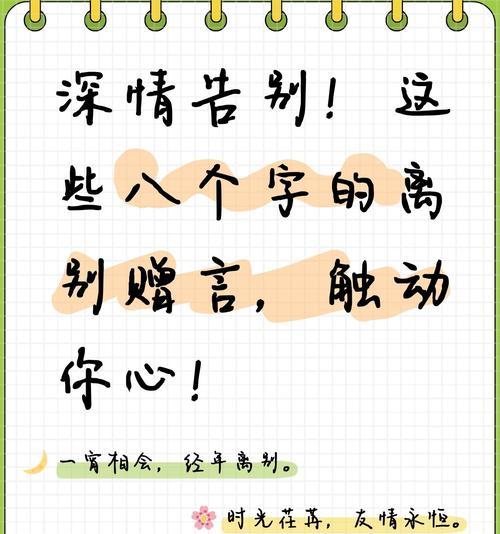 深情告别！这
些八个字的离
别赠言，触动
你心！
一宵相会，经年离别。
时光荏苒，友情永恒。